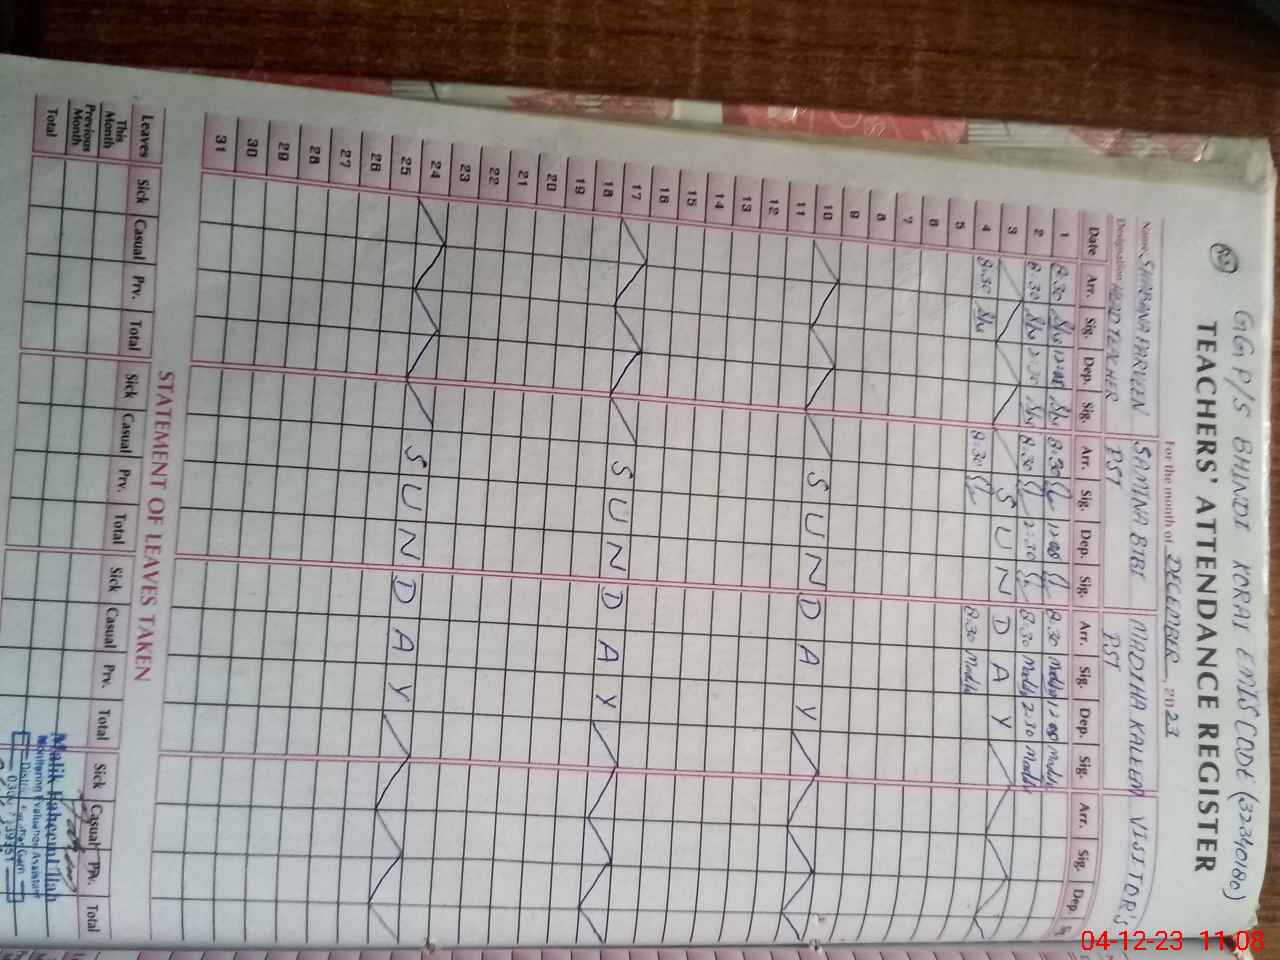 89
GGP/S BHINDI KORAI EMIS CODE (32340180)
TEACHERS' ATTENDANCE REGISTER
For the month of DECEMBER, 2023
Name SHABANA PARVEEN SAMINA BIBI MADIHA KALEEM VISITOR'S
Designation HEAD TEACHER PST PST
Date Arr. Sig. Dep. Sig. Arr. Sig. Dep. Sig. Arr. Sig. Dep. Sig. Arr. Sig. Dep.
1 8.30 12:00 8.30 12:00 8.30 12:00
2 8.30 2:30 8.30 2:30 8.30 2:30
3 SUNDAY
4 8.30 8.30 8.30
5
6
7
8
9
10 SUNDAY
11
12
13
14
15
16
17 SUNDAY
18
19
20
21
22
23
24 SUNDAY
25
26
27
28
29
30
31
STATEMENT OF LEAVES TAKEN
Leaves Sick Casual Prv. Total Sick Casual Prv. Total Sick Casual Prv. Total Sick Casual Prv. Total
This Month
Previous Month
Total
Malik
Monitoring Evaluation Assistant
04-12-23 11:08